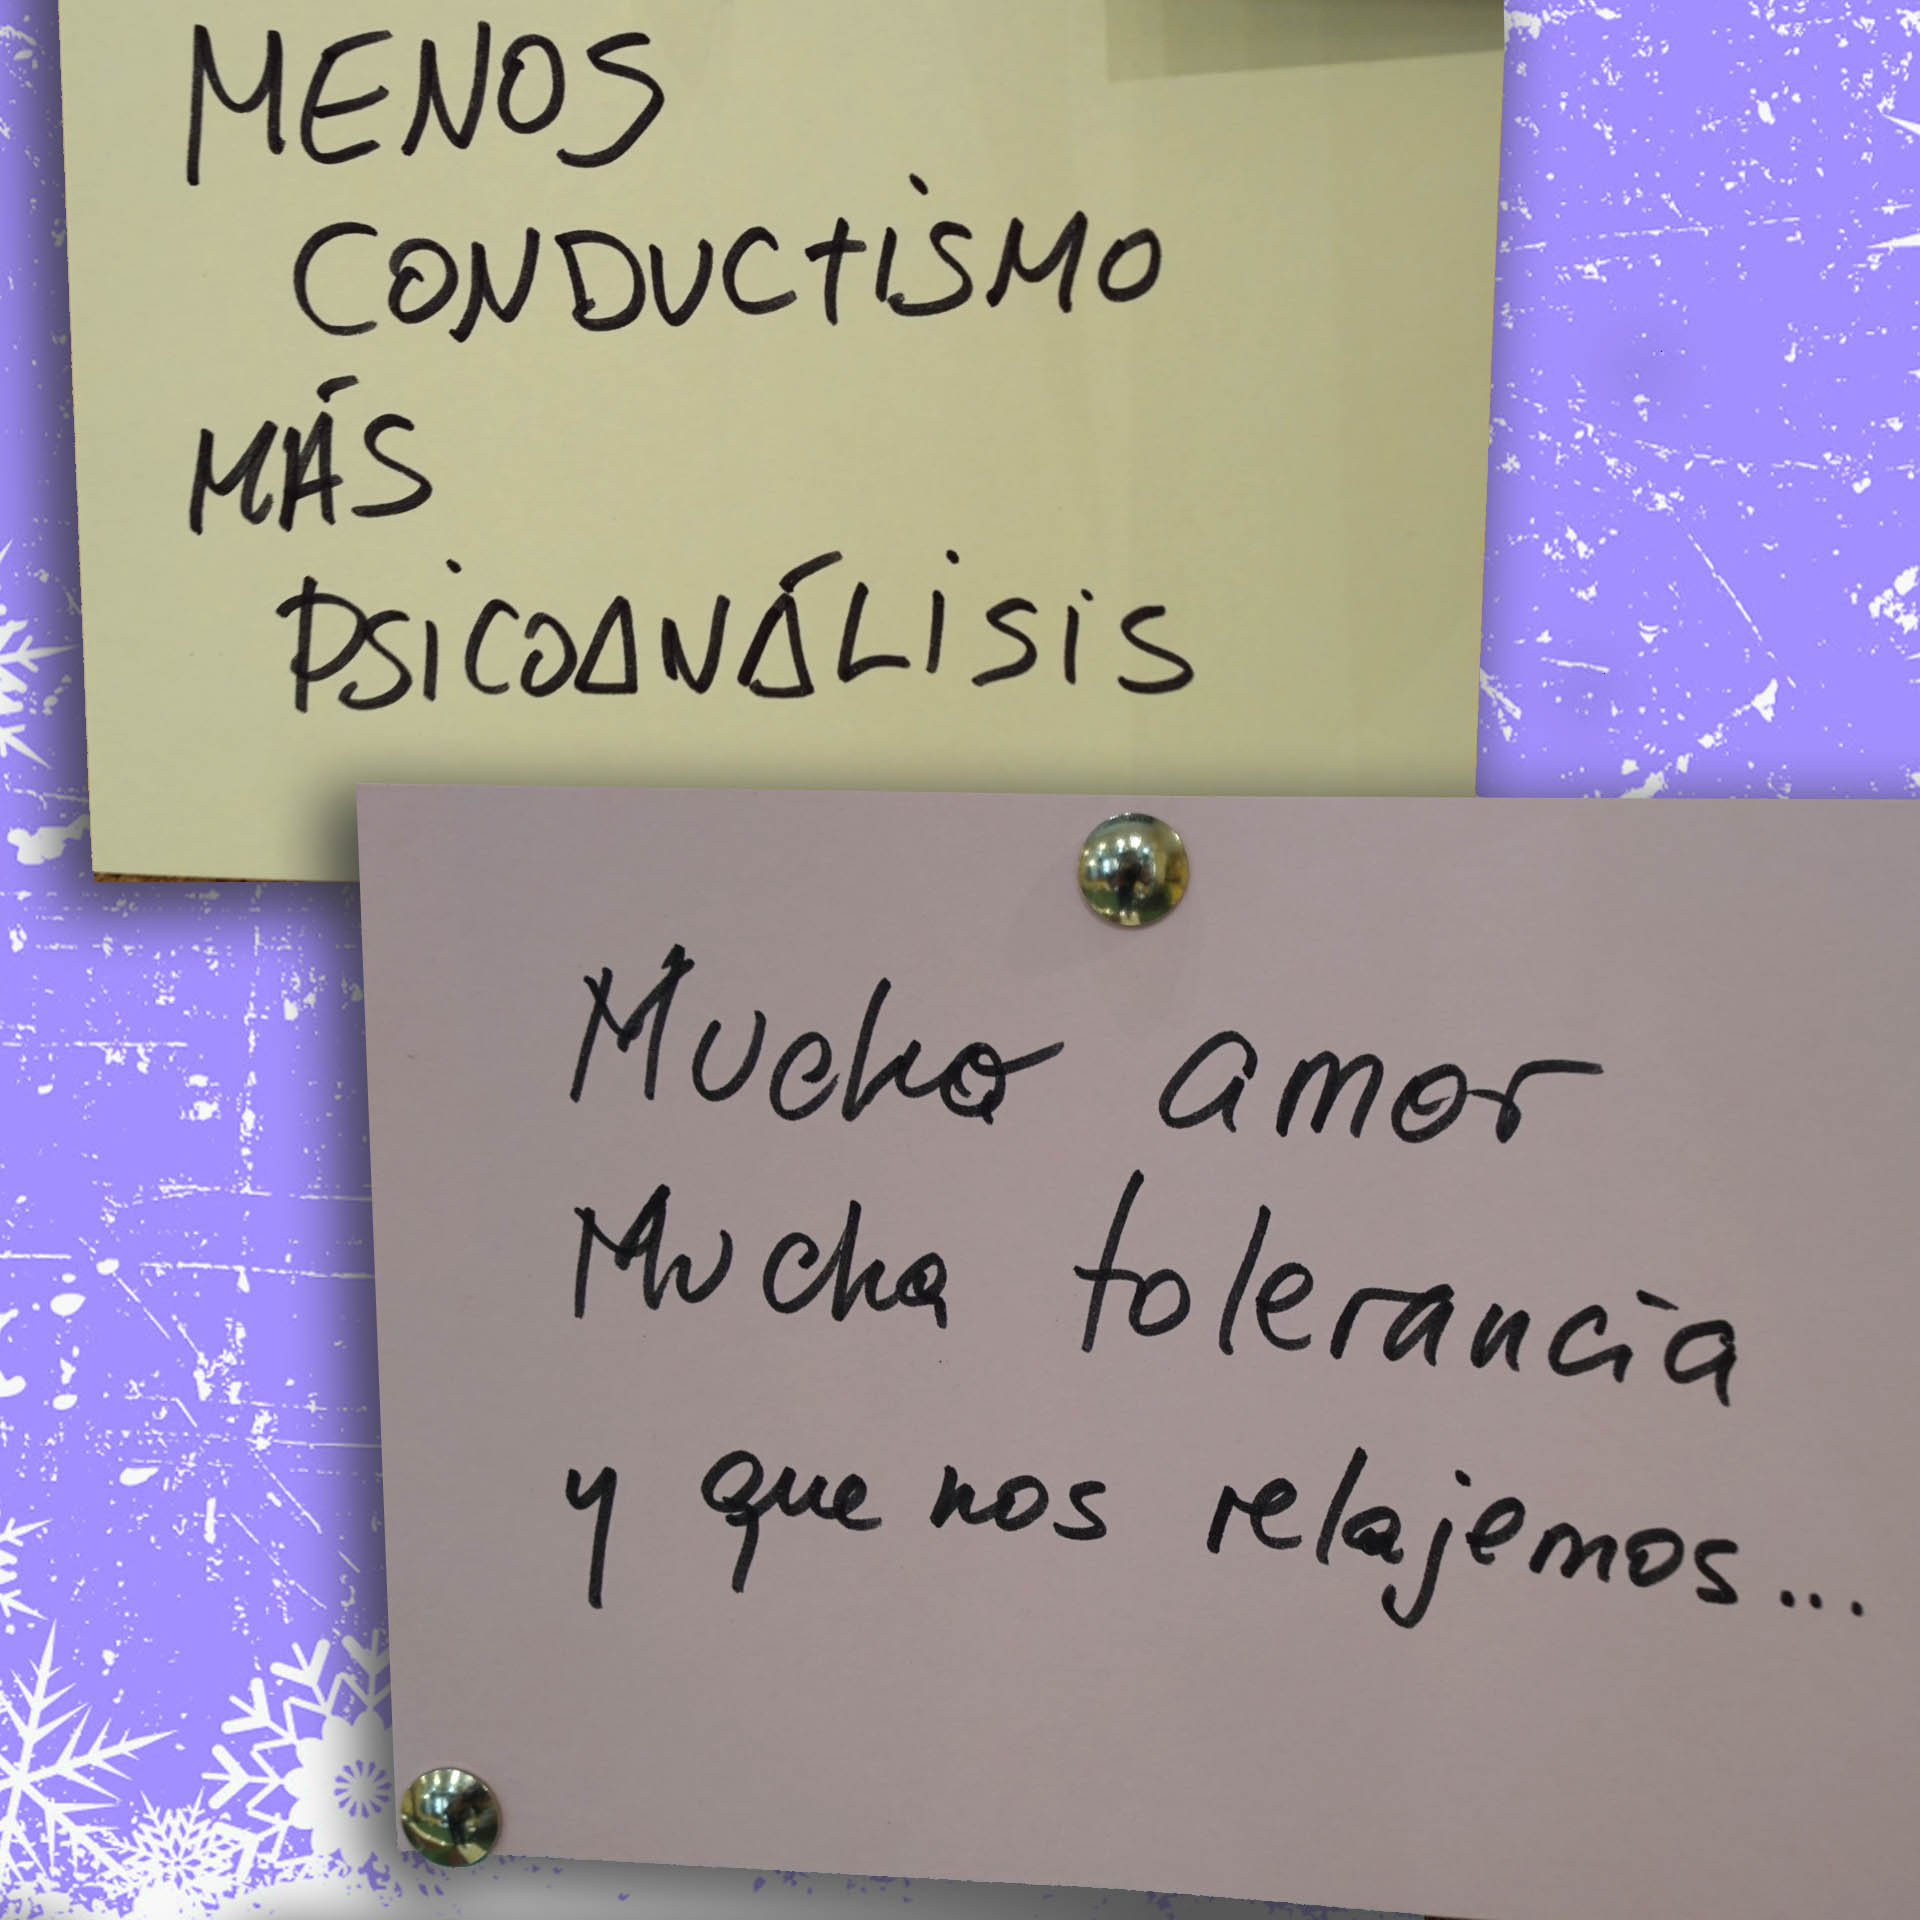 MENOS
CONDUCTISMO
MÁS
PSICOANÁLISIS
Mucho amor
Mucha tolerancia
y que nos relajemos...